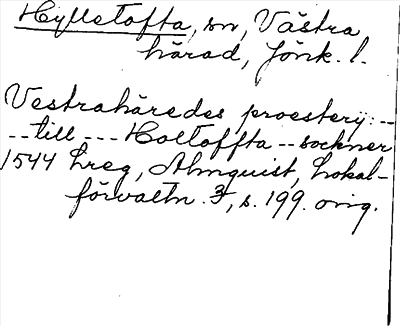 Hyllstofta, sn, Västra
härad, Jönk. l.
Vestrahäredes proestery: --
-- till --- Holtoffta -- sockner
1544 Lreg, Almquist, Lokal-
förvaltn. 3, s. 199. orig.